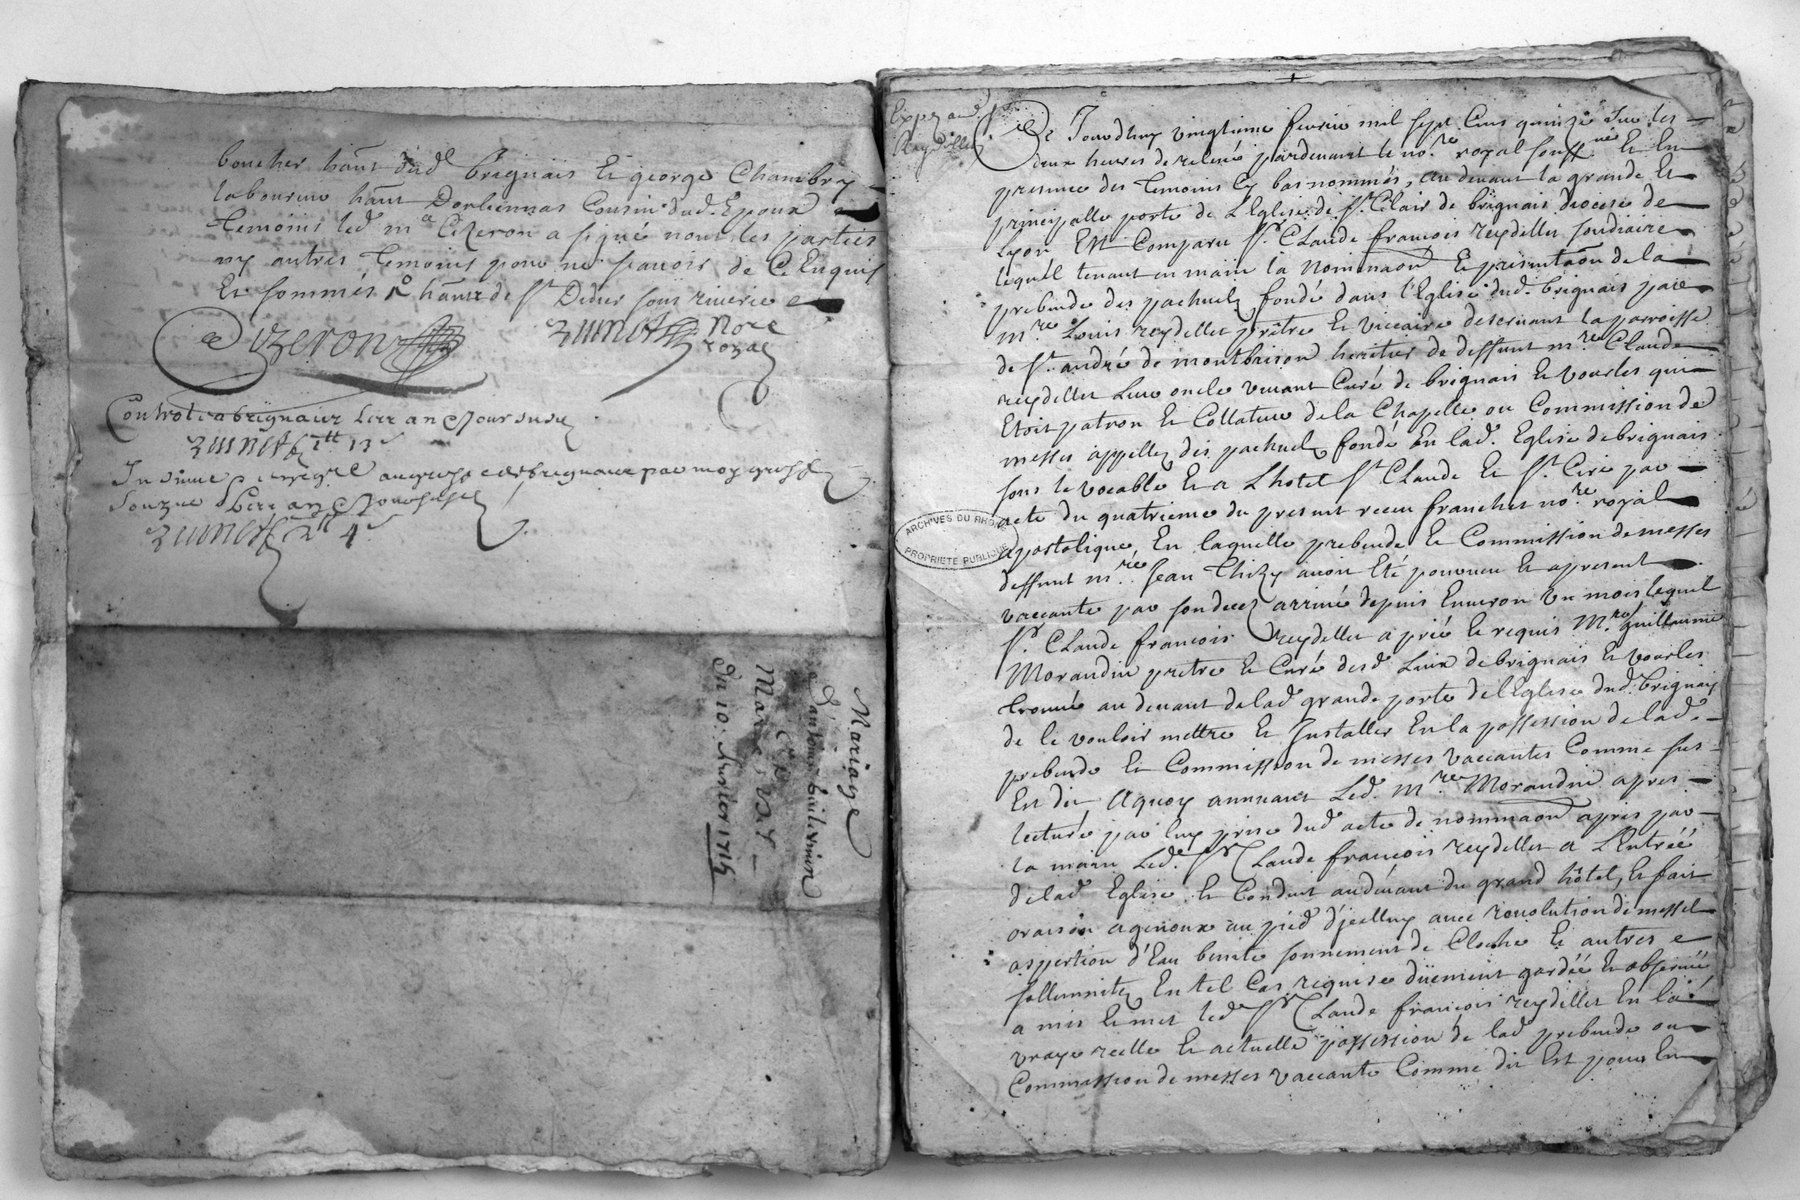 boucher ha͠nt dud brignais Et george Chambry
laboureur ha͠nt Dorliennas Cousin dud. Epoux
temoins led. me Cizeron a signé non les parties
ny autres temoins pour ne scauoir de ce Enquis
Et sommés ha͠nt de St Didier sous riuerie
Cizeron
Zunot Nore
royal
Controlé a brignais Les an & jour susd
Zunot 13 s
Insinué au greffe de brignais par moy greffier
soubzné Les an & jour susd
Zunot 2tt 4 s
Mariage
D'antoine Guillermin
&
Marie
Du 10: feurier 1715
Expez aud.
Reydellet
Ce Jourdhuy vingtieme feurier mil sept Cens quinze sur les
deux heures de releuée pardeuant le nore royal soussné Et En
presence des temoins Cy bas nommés, au deuant la grande Et
principalle porte de L'Eglise de St Clair de brignais diocese de
Lyon Est Comparu Sr Claude francois reydellet soudiaire
lequel tenant en main la Nominaon Et presentaon de la
prebende des pachuels fondé dans l'Eglise dud. brignais par
mre Louis reydellet prêtre Et viccaire deseruant la parroisse
de St andré de montbrison heritier de deffunt mre Claude
reydellet Leur oncle viuant Curé de brignais Et vourles qui
Etoit patron Et Collateur de la Chapelle ou Commission de
messes appellez des pachuels fondé En lad. Eglise de brignais
sous le vocable Et a L'hotel St Claude Et St Cire par
acte du quatrieme du present receu franchet nore royal
apostolique, En laquelle prebende Et Commission de messes
deffunt mre Jean Thizy auoit Eté pourueu Et apresent
vaccante par son decez arriué depuis Enuiron un mois lequel
Sr Claude francois reydellet a prié Et requis Mre guillaume
Morandin pretre Et Curé desd. Lieux de brignais Et vourles
trouué au deuant de lad. grande porte de l'Eglise dud. brignais
de le vouloir mettre Et Installer En la possession de lad.
prebende Et Commission de messes vaccantes Comme sus
Est dit, Aquoy annuant Led. Mre Morandin apres
lecture par luy prise dud. acte de nommaon apris par
la main Led. Sr Claude francois reydellet a L'Entrée
de lad. Eglise Et Conduit au deuant du grand hôtel, Et fait
oraison agenoux au pied d'jcelluy auec reuolution de messel
aspertion d'Eau benite sonnement de Cloche Et autres
sollemnitez En tel Cas requise düement gardée Et obseruée
a mis Et met led. Sr Claude francois reydellet En la
vraye reelle Et actuelle possession de lad. prebende ou
Commission de messes vaccante Comme dit Est pour En
ARCHIVES DU RHÔNE
PROPRIÉTÉ PUBLIQUE